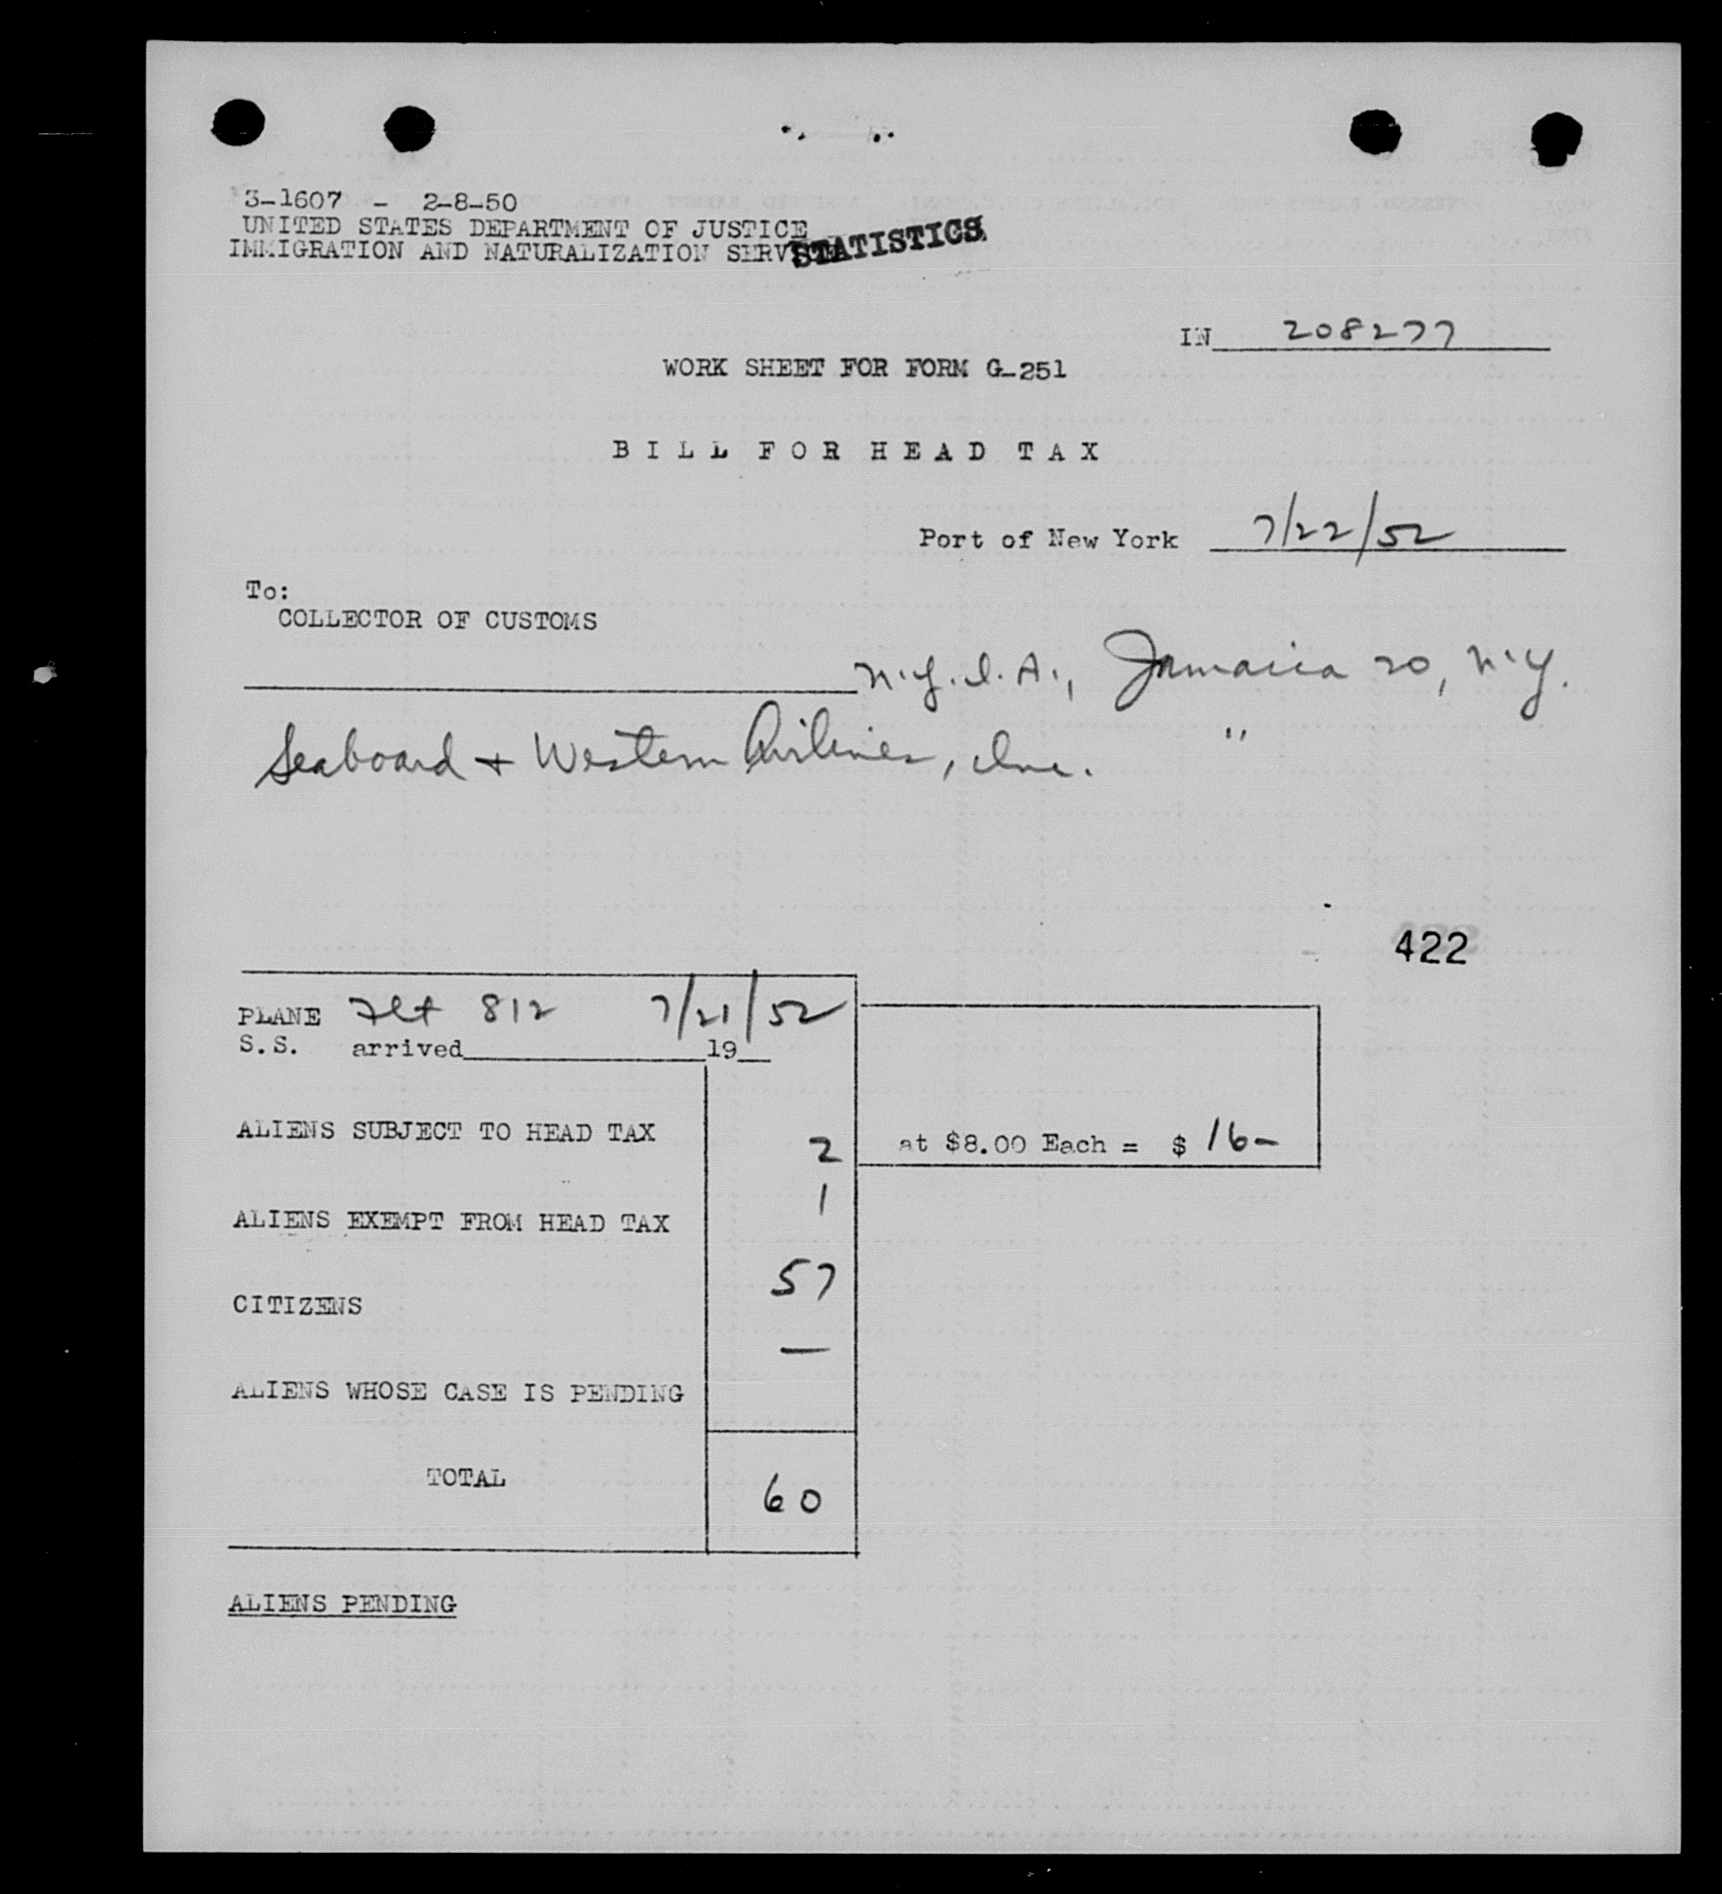 3-1607 - 2-8-50
UNITED STATES DEPARTMENT OF JUSTICE
IMMIGRATION AND NATURALIZATION SERVICE
STATISTICS
IN 208277
WORK SHEET FOR FORM G-251
BILL FOR HEAD TAX
Port of New York 7/22/52
To:
COLLECTOR OF CUSTOMS
N.Y.I.A., Jamaica 20, N.Y.
Seaboard + Western Airlines, Inc. "
422
PLANE Flt 812 7/21/52
S.S. arrived 19
ALIENS SUBJECT TO HEAD TAX 2 at $8.00 Each = $ 16-
ALIENS EXEMPT FROM HEAD TAX 1
CITIZENS 57
ALIENS WHOSE CASE IS PENDING —
TOTAL 60
ALIENS PENDING